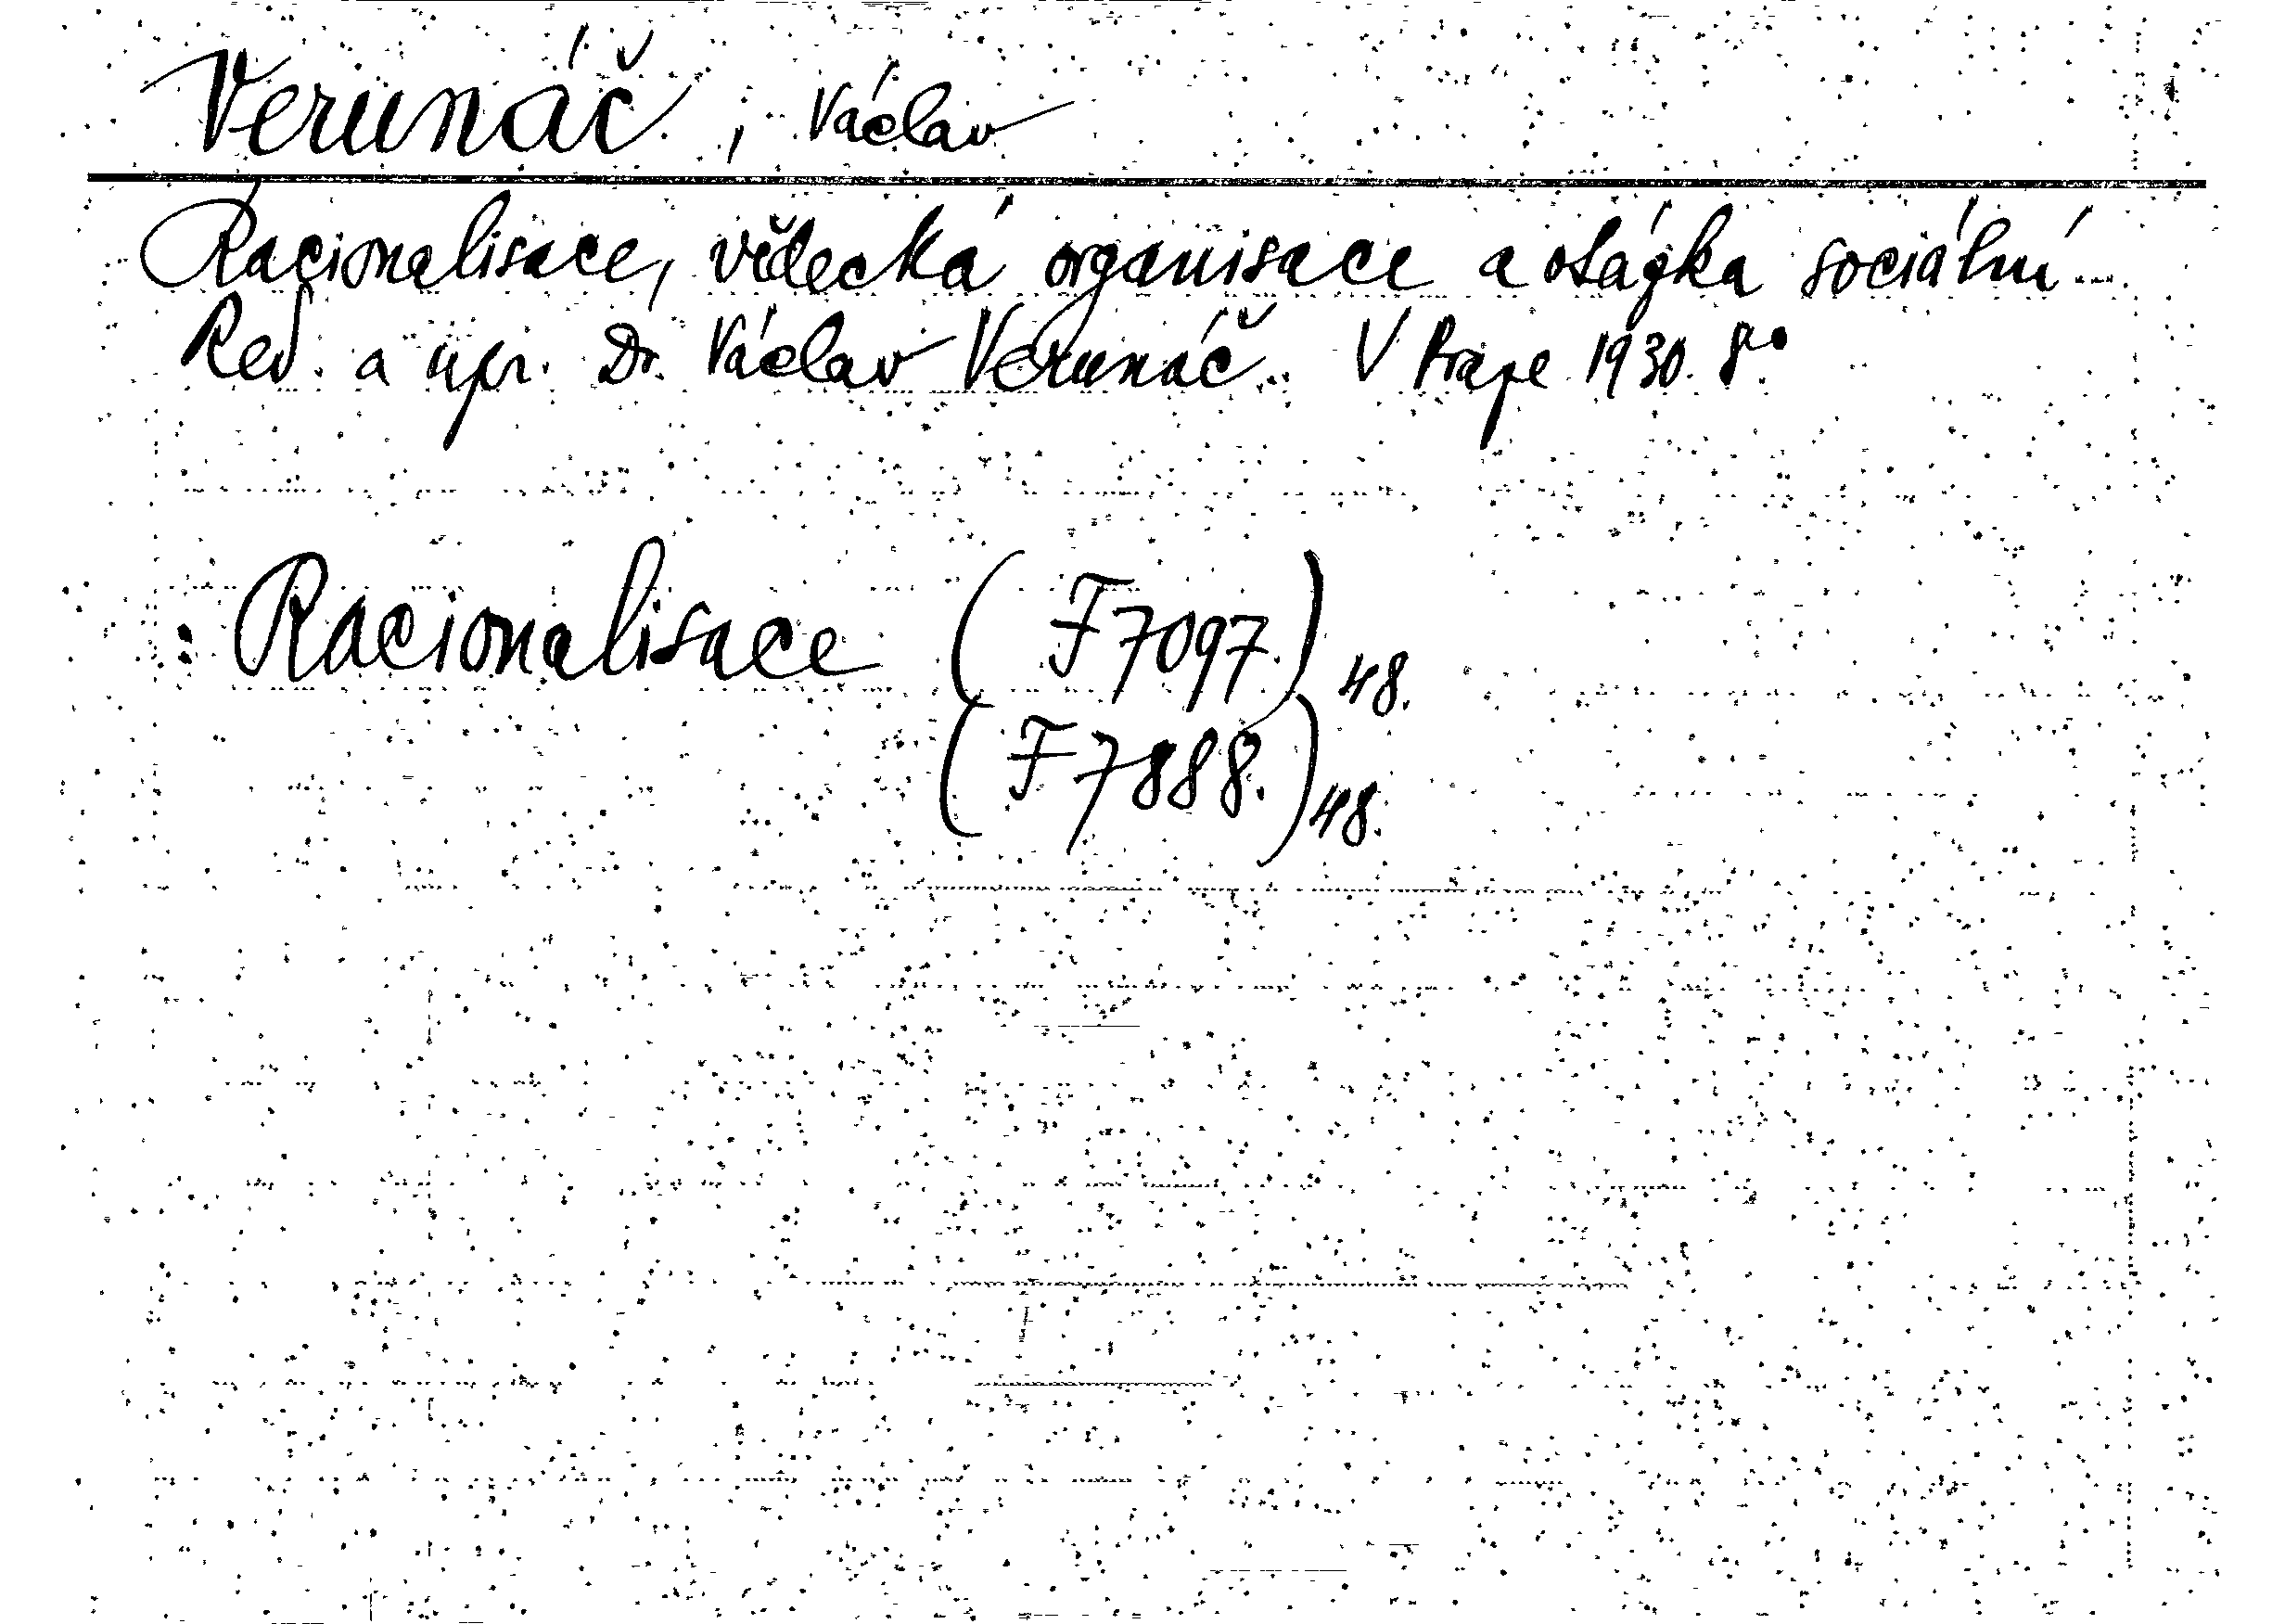 Verunáč, Václav
Racionalisace, vědecká organisace a otázka sociální...
Red. a upr. Dr. Václav Verunáč. V Praze 1930. 8°
: Racionalisace (F 7097.) 48.
(F 7888.) 48.